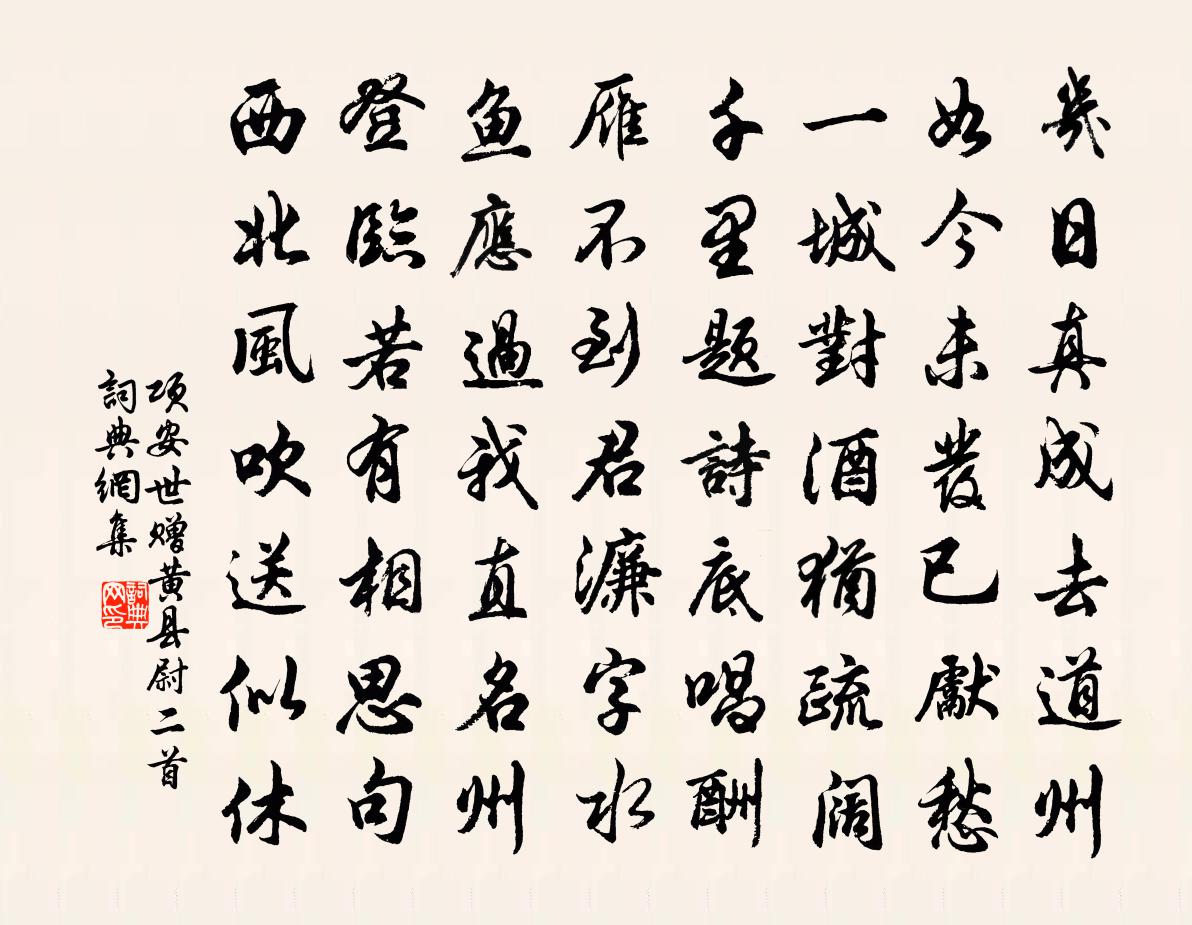 幾日真成去道州
如今未發已獻愁
一城對酒猶疏闊
千里題詩底唱酬
雁不到君濂字水
魚應過我直名州
登臨若有相思句
西北風吹送似休
项安世赠黄县尉二首
詞典網集
詞典網印